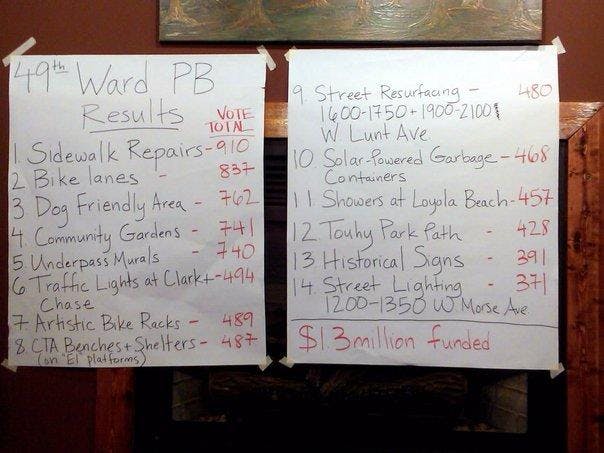 49th Ward PB
Results
VOTE
TOTAL
1. Sidewalk Repairs - 910
2 Bike lanes - 837
3. Dog Friendly Area - 762
4. Community Gardens - 741
5. Underpass Murals - 740
6 Traffic Lights at Clark + - 494
Chase
7. Artistic Bike Racks - 489
8. CTA Benches + Shelters - 487
(on "El" platforms)
9. Street Resurfacing - 480
1600-1750 + 1900-2100
W Lunt Ave
10 Solar-Powered Garbage - 468
Containers
11 Showers at Loyola Beach - 457
12 Touhy Park Path - 428
13 Historical Signs - 391
14. Street Lighting - 371
1200-1350 W Morse Ave.
$1.3 million funded